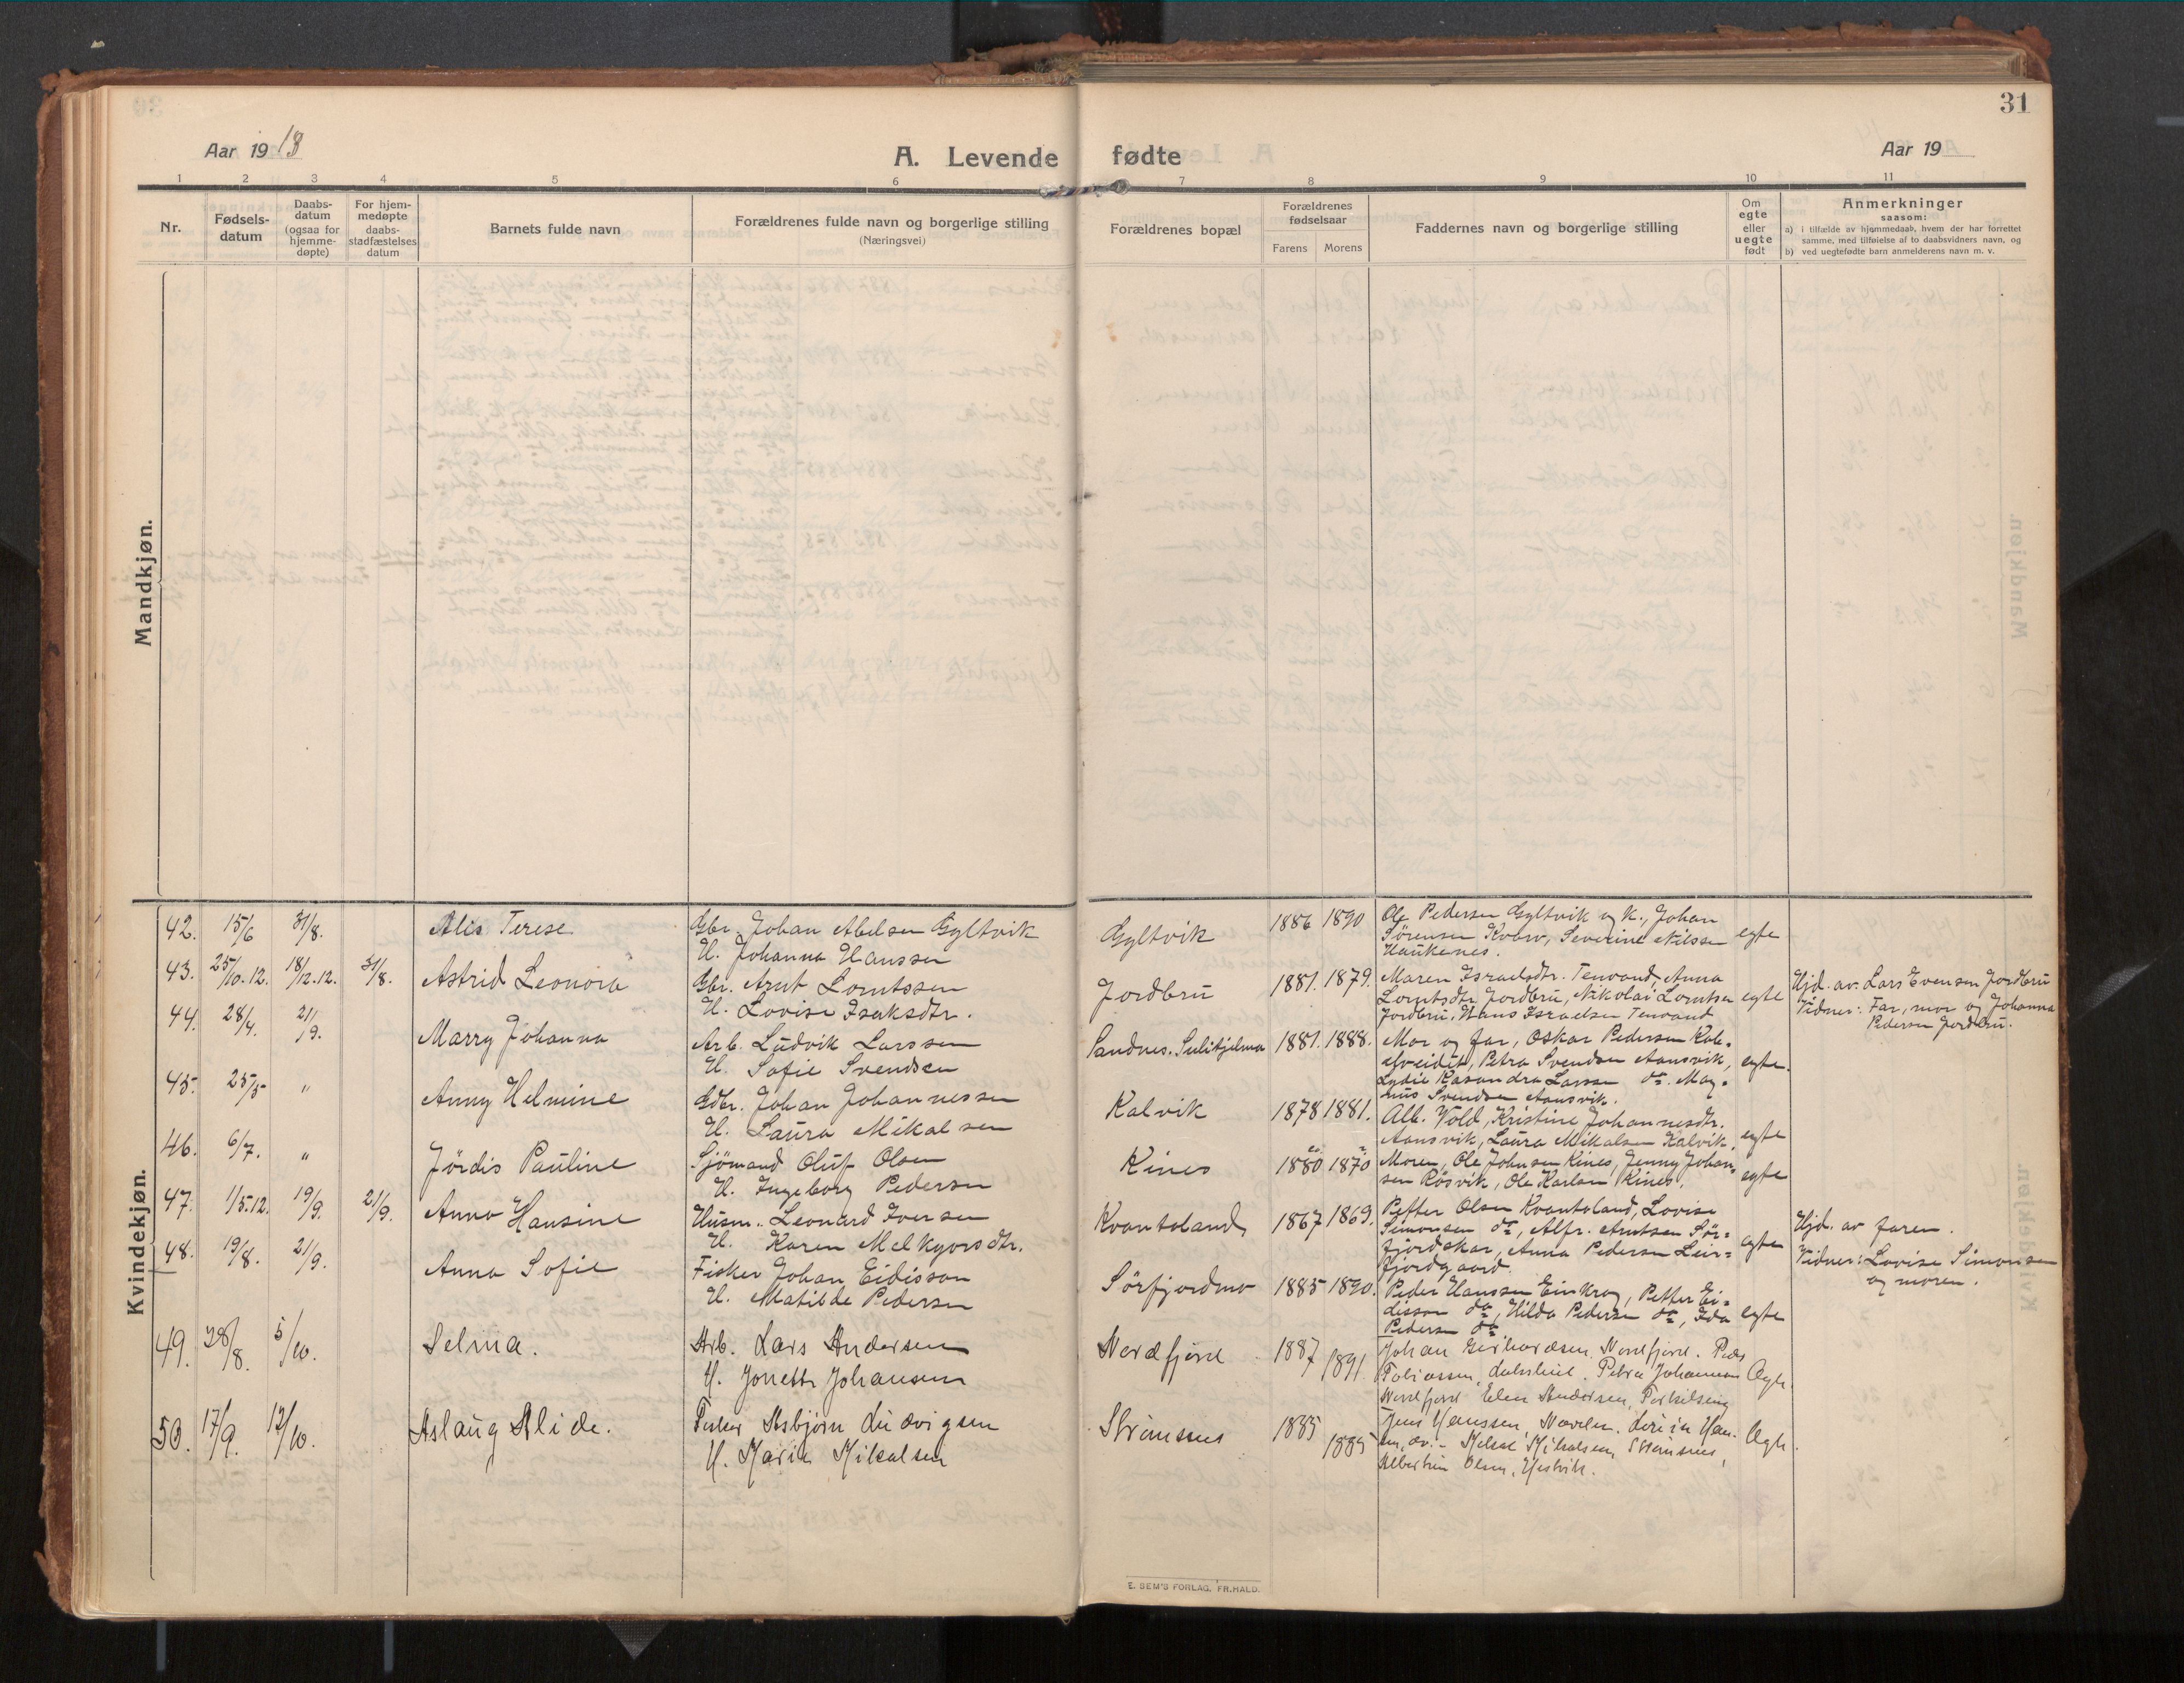 31
Aar 1913
A. Levende fødte
Aar 19
1 2 3 4 5 6 7 8 9 10 11
Nr.
Fødsels-
datum
Daabs-
datum
(ogsaa for
hjemme-
døpte)
For hjem-
medøpte
daabs-
stadfæstelses
datum
Barnets fulde navn
Forældrenes fulde navn og borgerlige stilling
(Næringsvei)
Forældrenes bopæl
Forældrenes
fødselsaar
Farens Morens
Faddernes navn og borgerlige stilling
Om
egte
eller
uegte
født
Anmerkninger
saasom:
a) i tilfælde av hjemmedaab, hvem der har forrettet
samme, med tilføielse af to daabsvidners navn, og
b) ved uegtefødte barn anmelderens navn m. v.
Mandkjøn.
Kvindekjøn.
42. 15/6 31/8. Alis Terese
Gbr. Johan Abelsen Gyltvik
H. Johanna Hanssen
Gyltvik 1886 1890
Ole Pedersen Gyltvik og k., Johan
Sørensen Kobro, Severine Nilssen
Haukenes.
egte
43. 25/10.12. 18/12.12. 31/8. Astrid Leonora
Gbr. Arnt Lorntssen
H. Lovise Isaksdtr.
Jordbru 1881. 1879.
Maren Israelsdtr. Tenvand, Anna
Lorntsdtr. Jordbru, Nikolai Lorntsen
Jordbru, Hans Israelsen Tenvand
egte
Hjd. av. Lars Evensen Jordbru
Vidner: Far, mor og Johanna
Pedersen Jordbru.
44. 28/4. 21/9. Marry Johanna
Arb. Ludvik Larssen
H. Sofie Svendsen
Sandnes. Sulitjelma 1881. 1888.
Mor og far, Oskar Pedersen Kals-
efveidet, Petra Svendsen Aansvik,
Lydie Kasandra Larssen do. Mag-
nus Svendsen Aansvik.
egte.
45. 25/5 " Anny Helmine
Gdbr. Johan Johannessen
H. Laura Mikalsen
Kalvik 1878 1881.
Alb. Vold, Kristine Johannesdtr.
Aansvik, Laura Mikalsen Kalvik.
egte
46. 6/7. " Jördis Pauline
Sjömand Oluf Olsen
H. Ingeborg Pedersen
Kines 1880 1870
Moren, Ole Johnsen Kines, Jenny Johan-
sen Rösvik, Ole Karlsen Kines.
egte
47. 1/5.12. 19/9. 21/9. Anna Hansine
Husm. Leonard Iversen
H. Karen Melkyorsdtr.
Kvantoland 1867 1869.
Petter Olsen Kvantoland, Lovise
Simonsen do, Alfr. Arntsen Sör-
fjordskar, Anna Pedersen Leir-
fjordgaard.
egte
Hjd. av faren.
Vidner: Lovise Simonsen
og moren.
48. 19/8. 21/9. Anna Sofie
Fisker Johan Eidisson
H. Matilde Pedersen
Sörfjordmo 1885 1890.
Peder Hanssen Einkrog, Petter Ei-
disson do, Hilda Pedersen do, Ida
Pedersen do
egte
49. 28/8. 5/10. Selma.
Arb. Lars Andersen
H. Jonette Johansen
Nordfjord 1887 1891.
Johan Gerhardsen, Nordfjord. Peder
Tobiassen, Petra Johannesen
Nordfjord Elen Andersen,
Ægte.
50. 17/9. 12/10. Aslaug Alide.
Fisker Asbjörn Ludvigsen
H. Marie Mikalsen
Strömsnes 1885 1885
Jens Hanssen, Han-
sen, do. - Mikalsen, Strömsnes,
Albertine Olsen,
Ægte.
E. SEM'S FORLAG, FR.HALD.